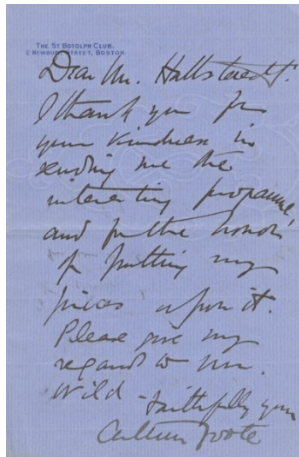 THE ST BOTOLPH CLUB,
2 NEWBURY STREET, BOSTON.
Dear Mr. Hallstead!
I thank you for
your kindness in
sending me the
interesting programme,
and for the honor
of putting my
pieces upon it.
Please give my
regards to Mr.
Wild - Faithfully yours
Arthur Foote